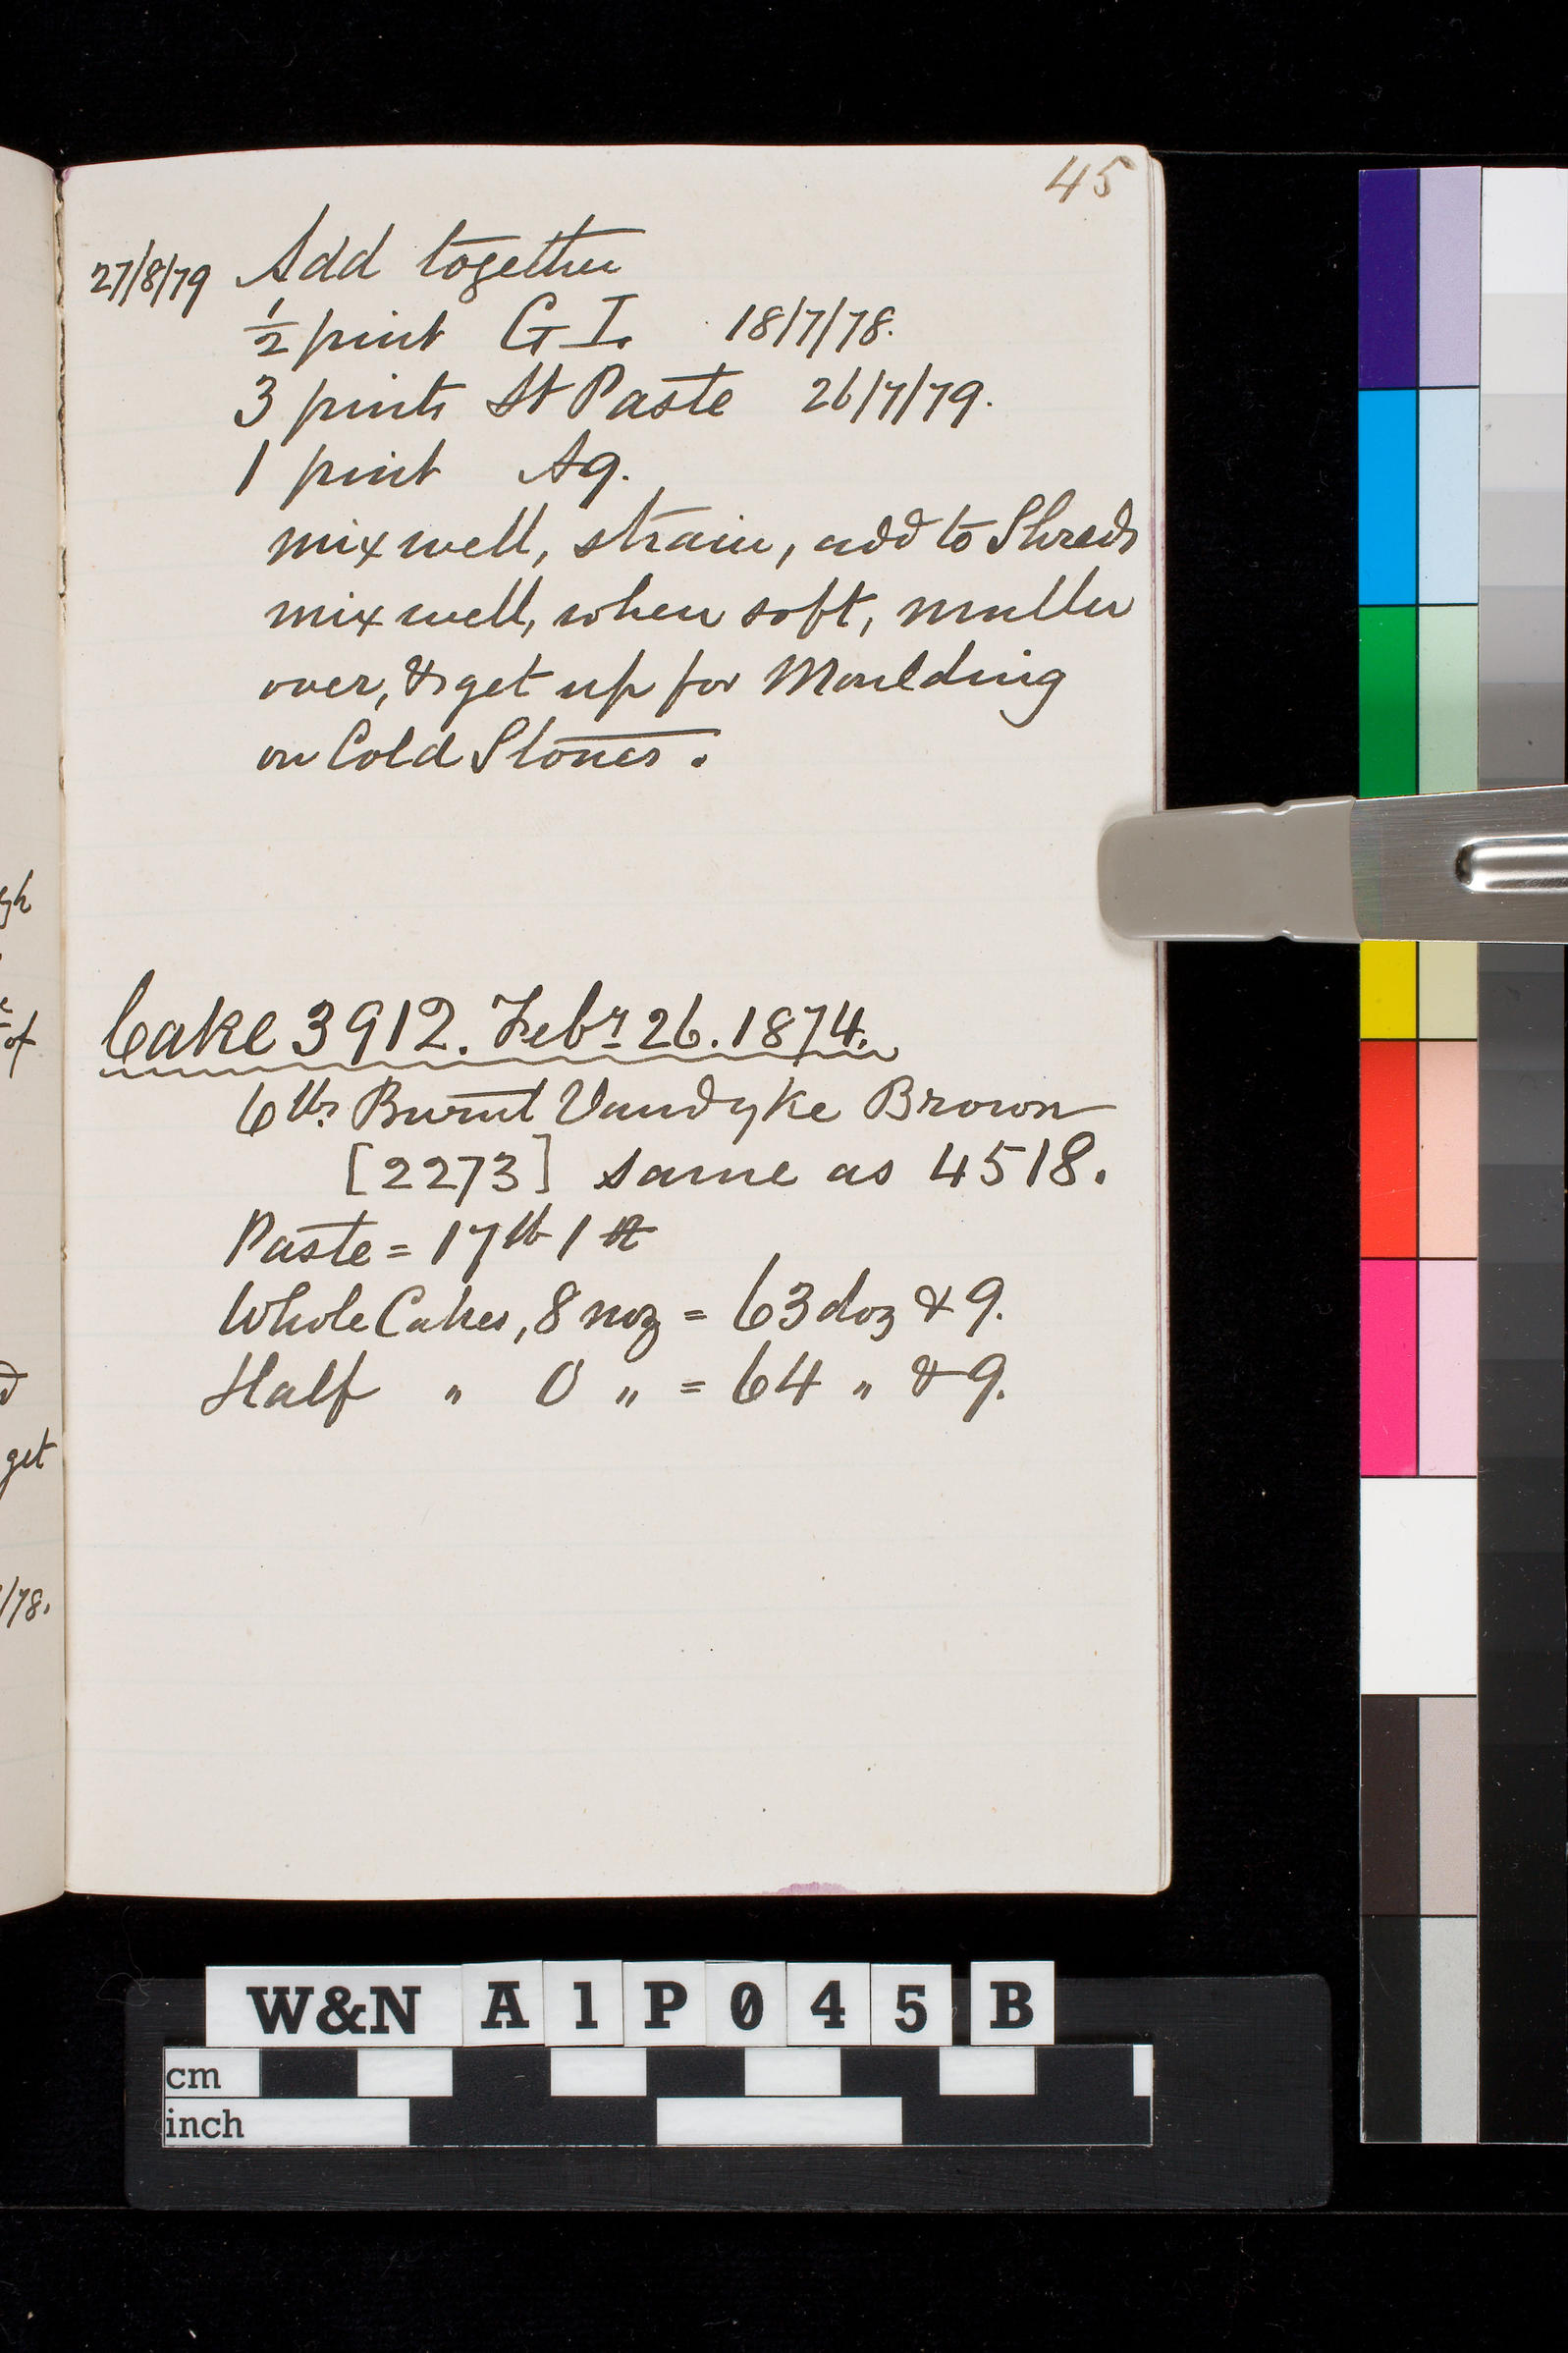 45
27/8/79 Add together
½ pint G I. 18/7/78.
3 pints St Paste 26/7/79.
1 pint Aq.
mix well, strain, add to Shreds
mix well, when soft, muller
over, & get up for Moulding
on Cold Stones.
Cake 3912. Febr 26. 1874.
6 lbs Burnt Vandyke Brown
[2273] same as 4518.
Paste = 17 lb 1
Whole Cakes, 8 noz = 63 doz & 9.
Half " 0 " = 64 " & 9.
gh
of
get
/78.
W&N A1P045 B
cm
inch